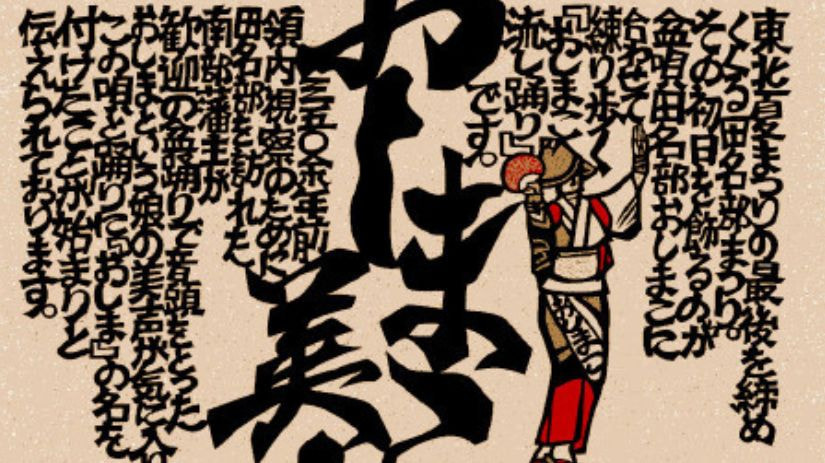 東北夏まつりの最後を締め
くくる田名部まつり。
その初日を飾るのが
盆唄田名部おしまこに
合わせて
練り歩く
『おしまこ
流し踊り』
です。
おしまこ
美
三五〇余年前
領内視察のために
田名部を訪れた
南部藩主が
歓迎の盆踊りで音頭をとった
おしまという娘の美声が気に入り
この唄と踊りに『おしま』の名を
付けたことが始まりと
伝えられております。